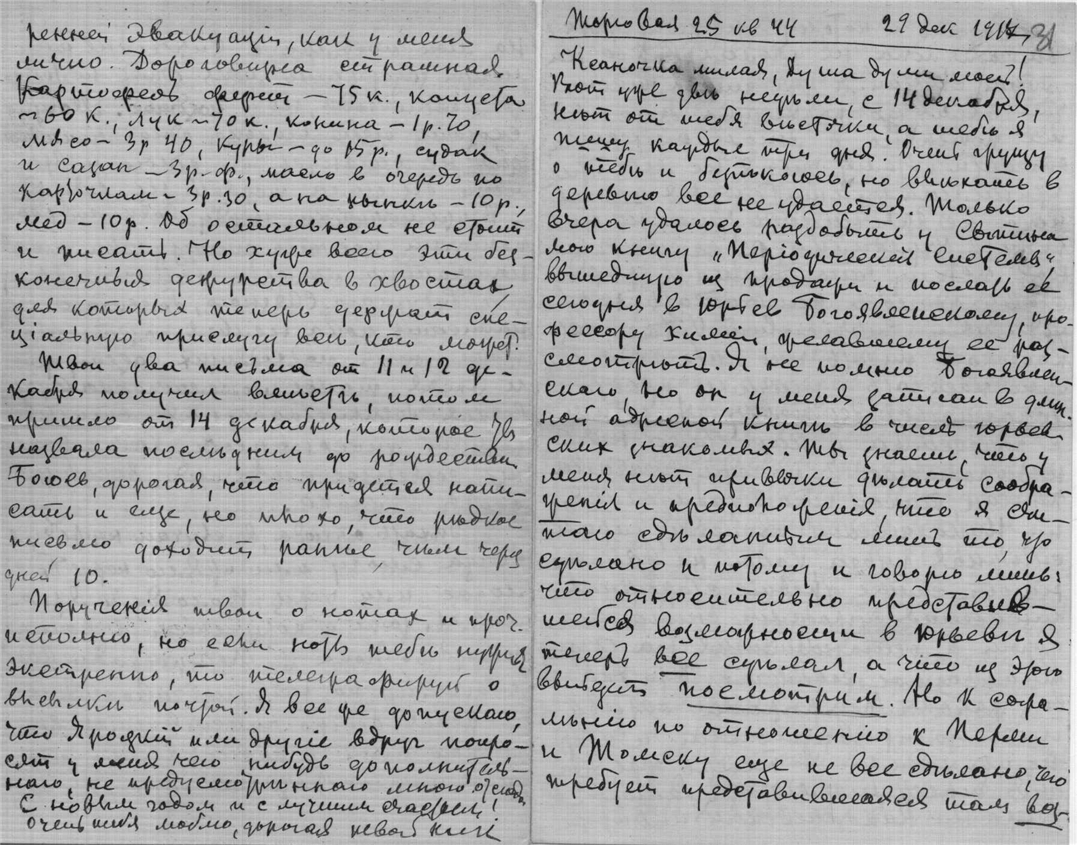 ренней Эвакуаціи, как у меня
лично. Дороговизна страшная
Картофель фунт – 15 к., капуста
– 60 к., лук – 70 к., конина – 1 р. 70,
мясо – 3 р 40, куры – до 15 р., судак
и сазан – 3 р. ф., масло в очередь по
карточкам – 3 р. 30, а на рынкѣ – 10 р.,
мед – 10 р. Об остальном не стоит
и писать. Но хуже всего эти без-
конечныя дежурства в хвостах,
для которых теперь держат спе-
ціальную прислугу всѣ, кто может.
Твои два письма от 11 и 12 де-
кабря получил вмѣстѣ, потом
пришло от 14 декабря, которое ты
назвала послѣдним до рождества.
Боюсь, дорогая, что придется напи-
сать и еще, но плохо, что рѣдкое
письмо доходит раньше, чѣм через
дней 10.
Порученія твои о нотах и проч.
исполню, но если ноты тебѣ нужны
экстренно, то телеграфируй о
высылкѣ почтой. Я все же допускаю,
что Яроцкій или другіе вдруг попро-
сят у меня чего нибудь дополнитель-
наго, не предусмотрѣннаго мною отсюда
С новым годом и с лучшим счастьем!
Очень тебя люблю, дорогая
Торговая 25 кв 44 29 дек 1917 31
Ксаночка милая, душа души моей!
Вот уже двѣ недѣли, с 14 декабря,
нѣт от тебя вѣсточки, а тебѣ я
пишу каждые три дня. Очень грущу
о тебѣ и безпокоюсь, но выѣхать в
деревню все не удается. Только
вчера удалось раздобыть у Сытина
мою книгу „Періодической системы",
вышедшую из продажи и послать ее
сегодня в Юрьев Богоявленскому, про-
фессору химіи, желавшему ее раз-
смотрѣть. Я не помню Богоявлен-
скаго, но он у меня записан в длин-
ной адресной книгѣ в числѣ юрьев-
ских знакомых. Ты знаешь, что у
меня нѣт привычки дѣлать сообра-
женія и предположенія, что я счи-
таю сдѣланным лишь то, что
сдѣлано и потому и говорю лишь:
что относительно представив-
шейся возможности в Юрьевѣ я
теперь все сдѣлал, а что из этого
выйдет посмотрим. Но к сожа-
лѣнію по отношенію к Перми
и Томску еще не все сдѣлано, чего
требует представившаяся там воз-